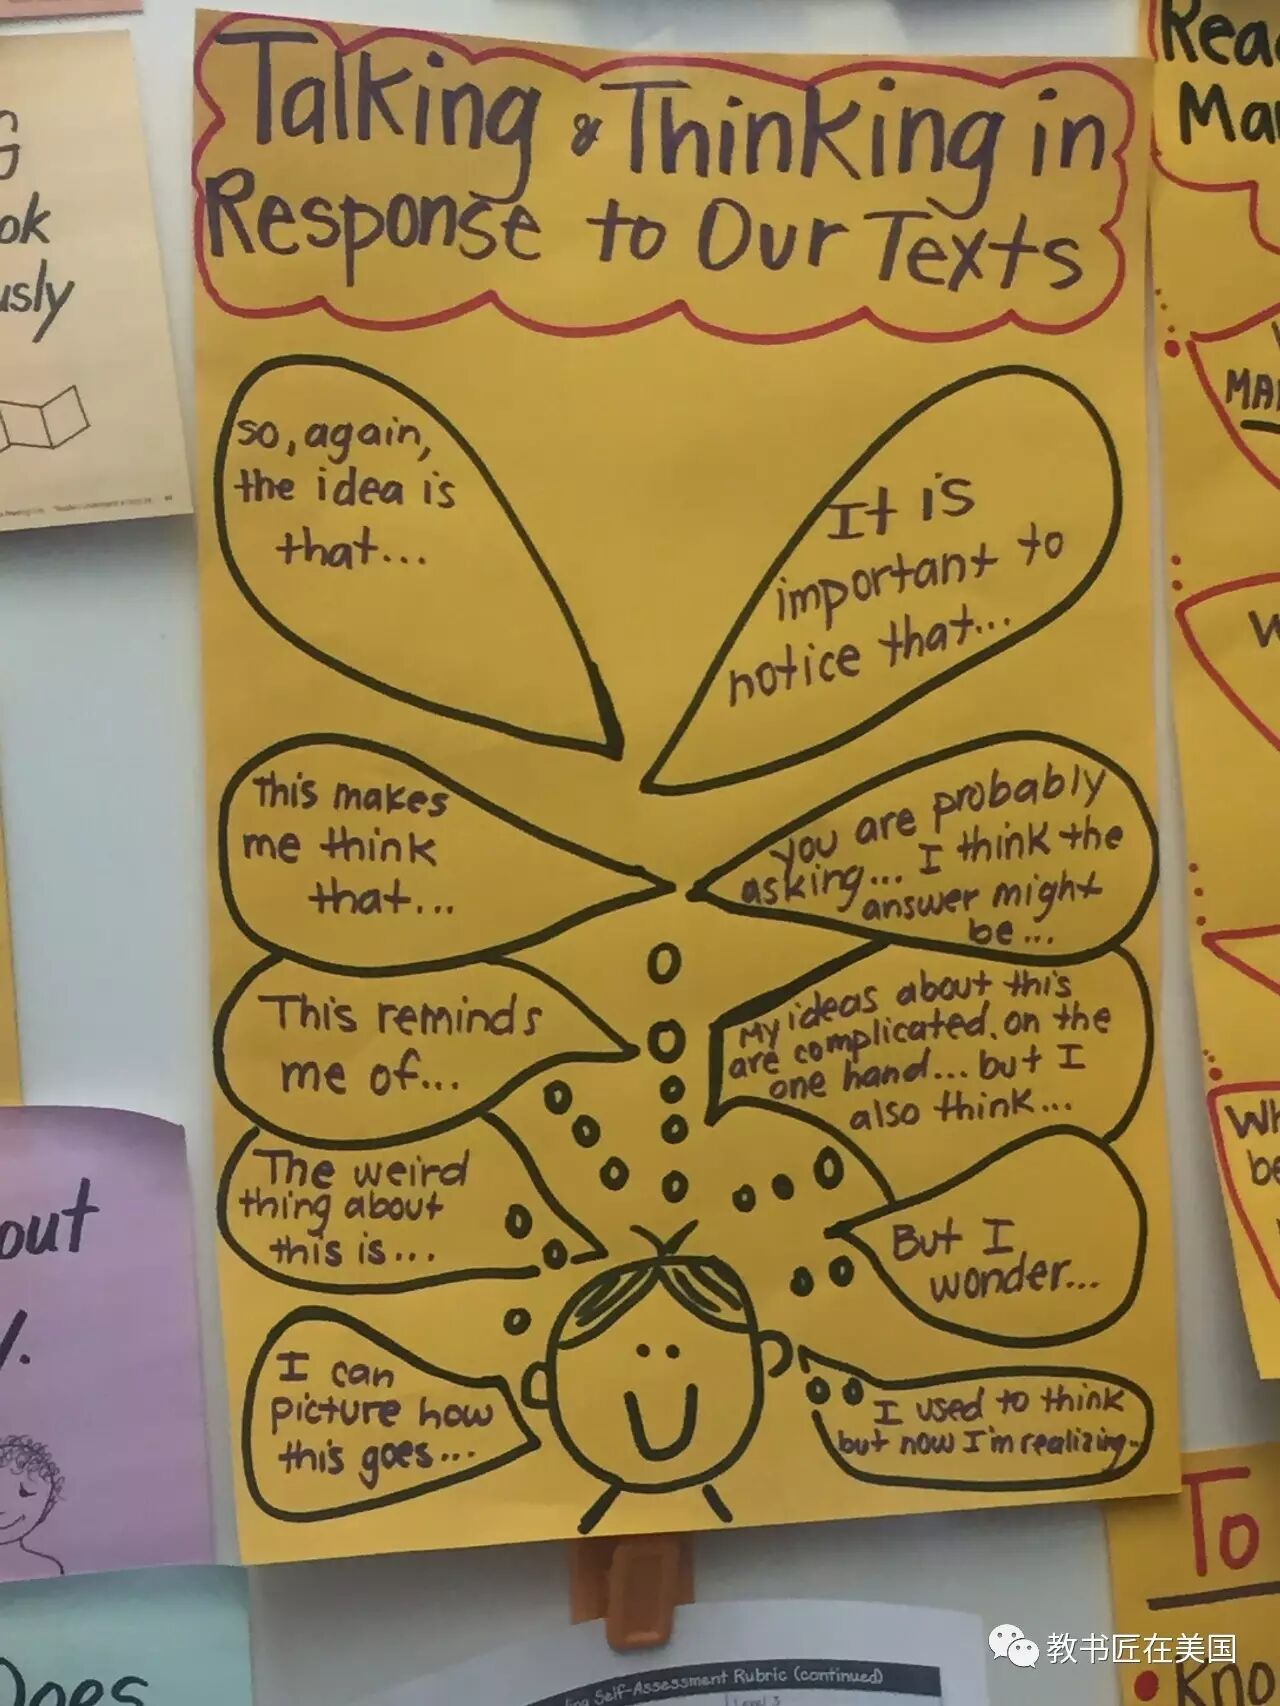 Talking & Thinking in
Response to Our Texts
So, again,
the idea is
that...
It is
important to
notice that...
This makes
me think
that...
you are probably
asking... I think the
answer might
be...
This reminds
me of...
My ideas about this
are complicated. on the
one hand... but I
also think...
The weird
thing about
this is...
But I
wonder...
I can
picture how
this goes...
I used to think
but now I'm realizing...
ok
usly
out
y.
Does
Rea
Ma
MA
W
Wh
be
To
Kno
ing Self-Assessment Rubric (continued)
Level 3
教书匠在美国